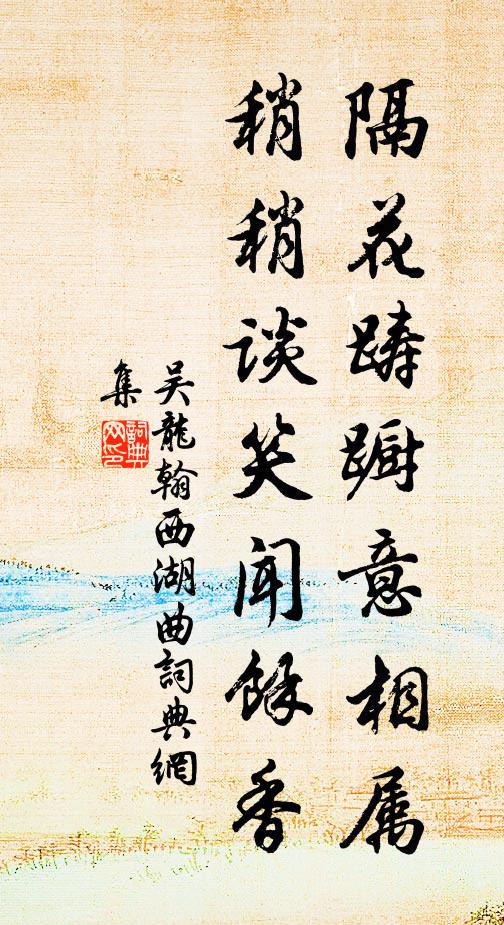 隔花踌蹰意相属
稍稍谈笑闻馀香
吴龍翰西湖曲詞典網
集
詞典
网印